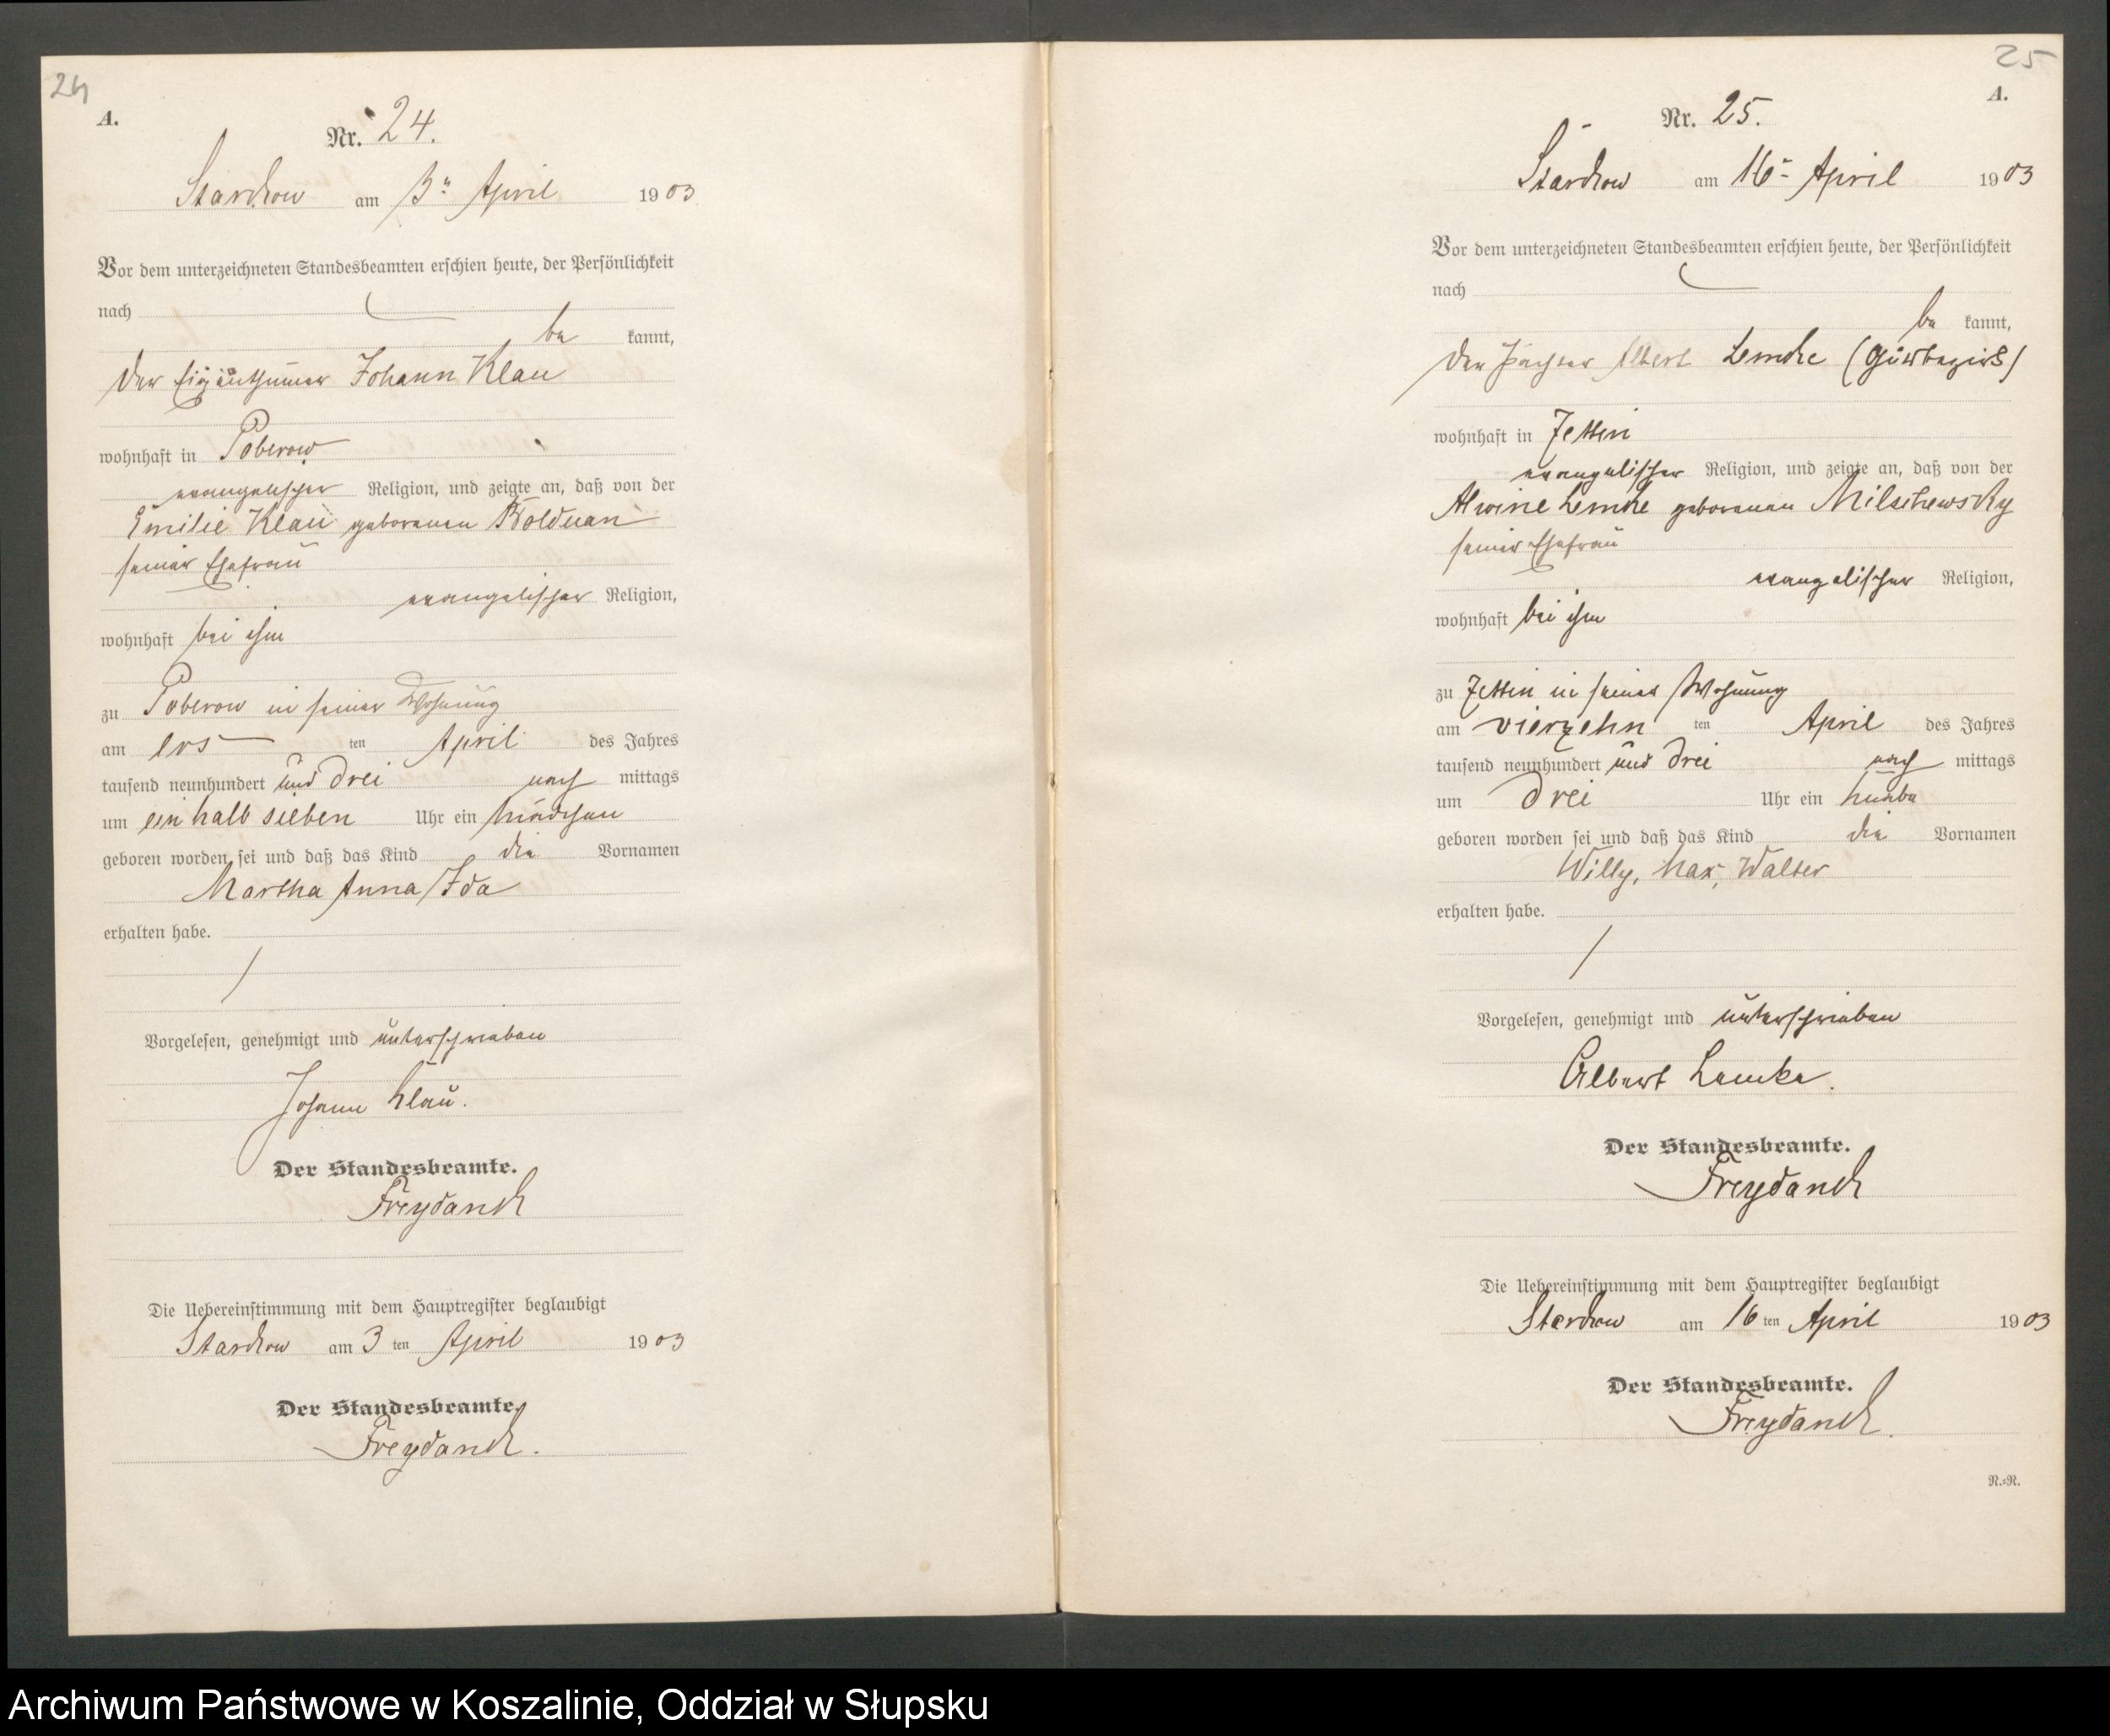 24
A.
Nr. 24.
Starckow am 3ten April 1903
Vor dem unterzeichneten Standesbeamten erschien heute, der Persönlichkeit
nach
be kannt,
der Eigenthümer Johann Klau
wohnhaft in Poberow
evangelischer Religion, und zeigte an, daß von der
Emilie Klau geborenen Bolduan
seiner Ehefrau
evangelischer Religion,
wohnhaft bei ihm
zu Poberow in seiner Wohnung
am ers ten April des Jahres
tausend neunhundert und drei nach mittags
um ein halb sieben Uhr ein Mädchen
geboren worden sei und daß das Kind die Vornamen
Martha Anna Ida
erhalten habe.
Vorgelesen, genehmigt und unterschrieben
Johann Klau.
Der Standesbeamte.
Freydanck
Die Uebereinstimmung mit dem Hauptregister beglaubigt
Starckow am 3 ten April 1903
Der Standesbeamte.
Freydanck.
25
A.
Nr. 25.
Starckow am 16ten April 1903
Vor dem unterzeichneten Standesbeamten erschien heute, der Persönlichkeit
nach
be kannt,
der Pächter Albert Lemcke (Gutsbezirk)
wohnhaft in Zettin
evangelischer Religion, und zeigte an, daß von der
Alwine Lemcke geborenen Milschewsky
seiner Ehefrau
evangelischer Religion,
wohnhaft bei ihm
zu Zettin in seiner Wohnung
am vierzehn ten April des Jahres
tausend neunhundert und drei nach mittags
um drei Uhr ein Knabe
geboren worden sei und daß das Kind die Vornamen
Willy, Max, Walter
erhalten habe.
Vorgelesen, genehmigt und unterschrieben
Albert Lemke.
Der Standesbeamte.
Freydanck
Die Uebereinstimmung mit dem Hauptregister beglaubigt
Starckow am 16 ten April 1903
Der Standesbeamte.
Freydanck.
N.=R.
Archiwum Państwowe w Koszalinie, Oddział w Słupsku